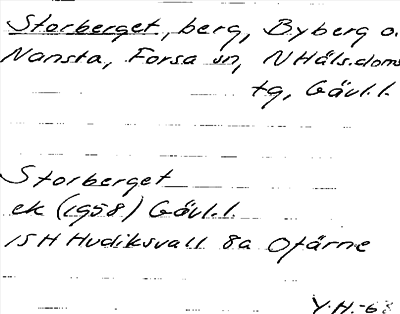 Storberget, berg, Byberg o.
Nansta, Forsa sn, N Häls. doms
tg, Gävl.l.
Storberget
ek (1958) Gävl.l.
15H Hudiksvall 8a Ofärne
Y.H.-68